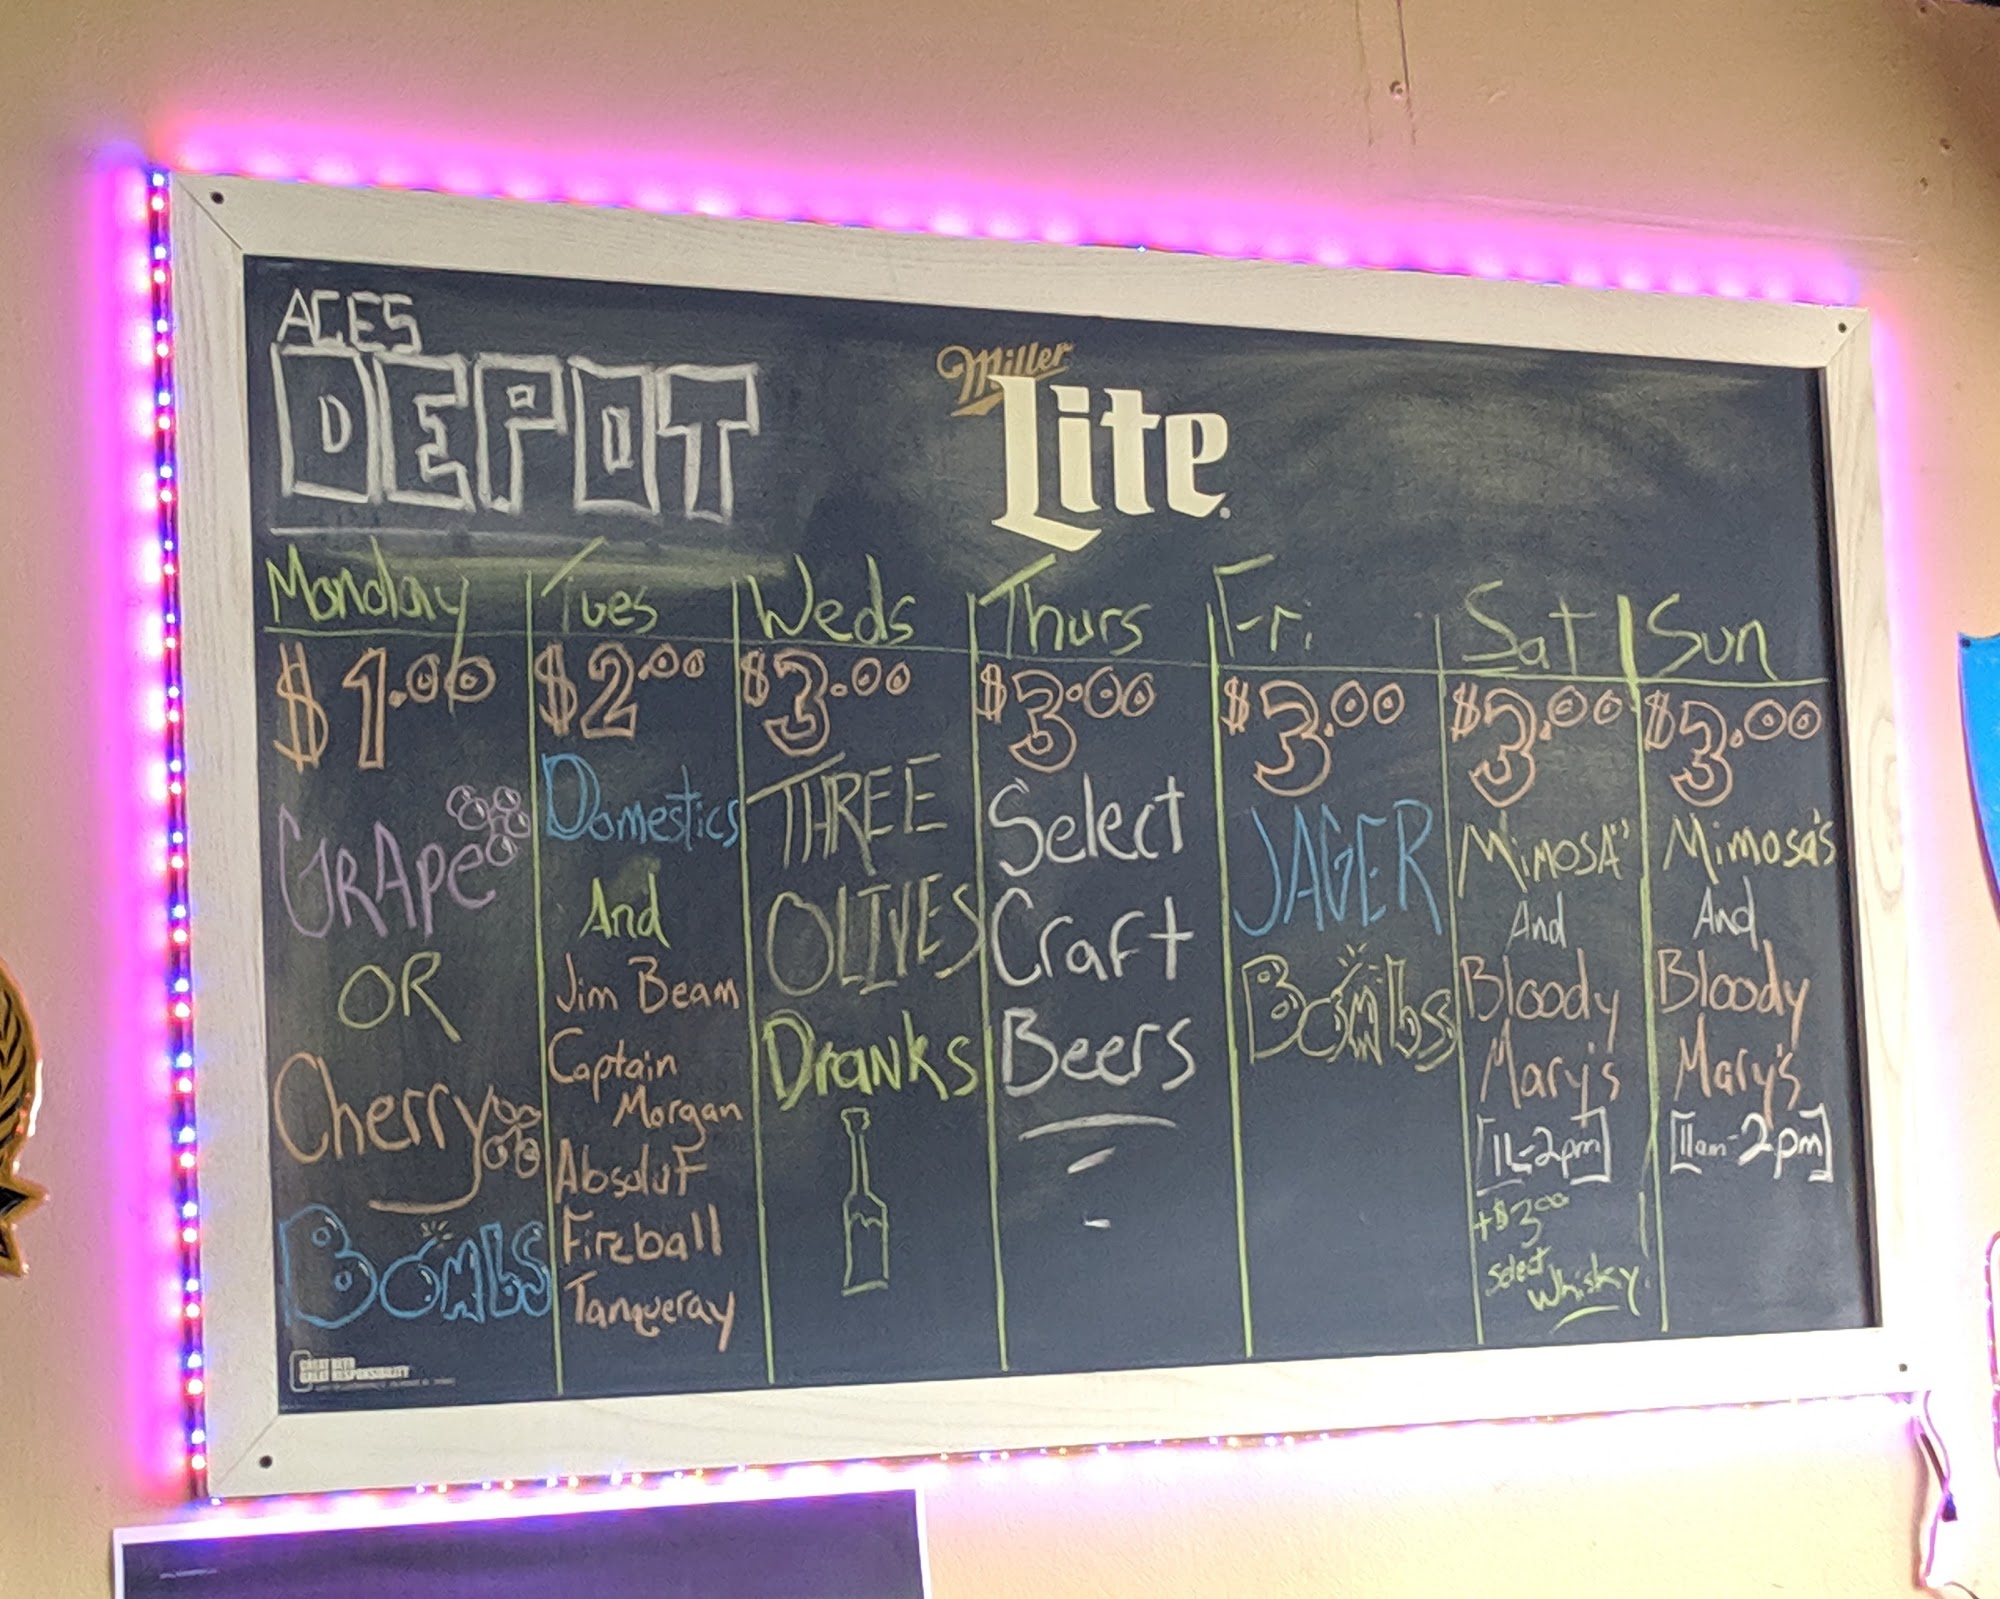 ACES
DEPOT
Miller
Lite
Monday
$1.00
GRApe
OR
Cherry
Bombs
Tues
$2.00
Domestics
And
Jim Beam
Captain
Morgan
Absolut
Fireball
Tanqueray
Weds
$3.00
THREE
OLIVES
Dranks
Thurs
$3.00
Select
Craft
Beers
Fri.
$3.00
JAGER
Bombs
Sat
$3.00
MimosA's
And
Bloody
Mary's
[11-2pm]
+$3.00
Select
Whisky.
Sun
$3.00
Mimosa's
And
Bloody
Mary's
[11am-2pm]
GREAT BEER
GREAT RESPONSIBILITY